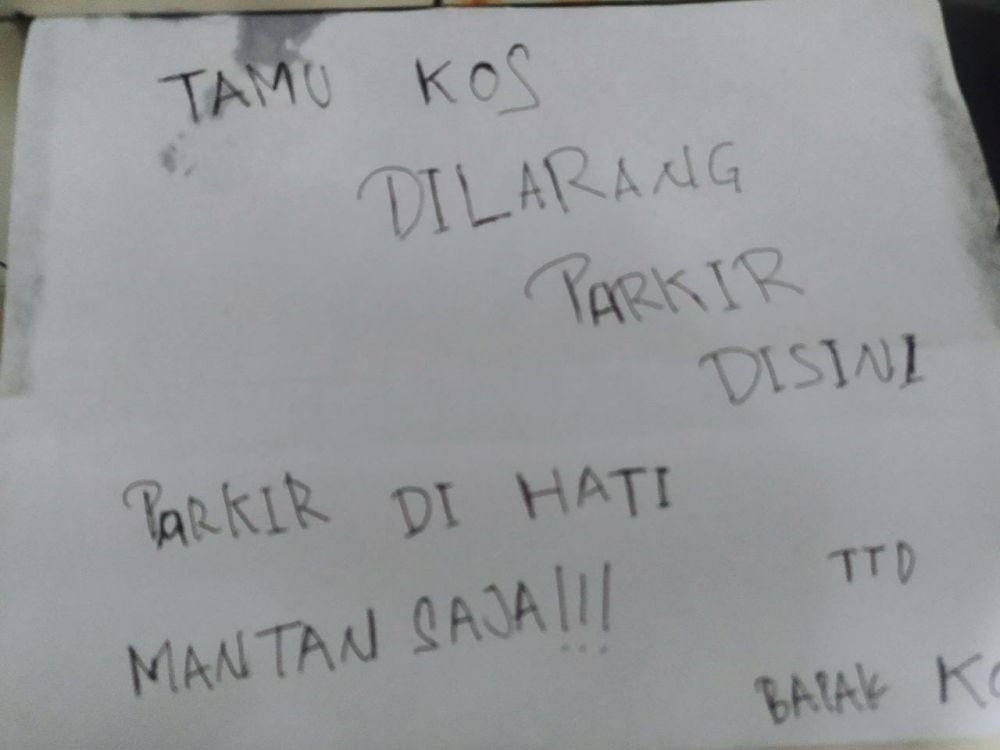 TAMU KOS
DILARANG
PARKIR
DISINI
PARKIR DI HATI
MANTAN SAJA!!!
TTD
BAPAK